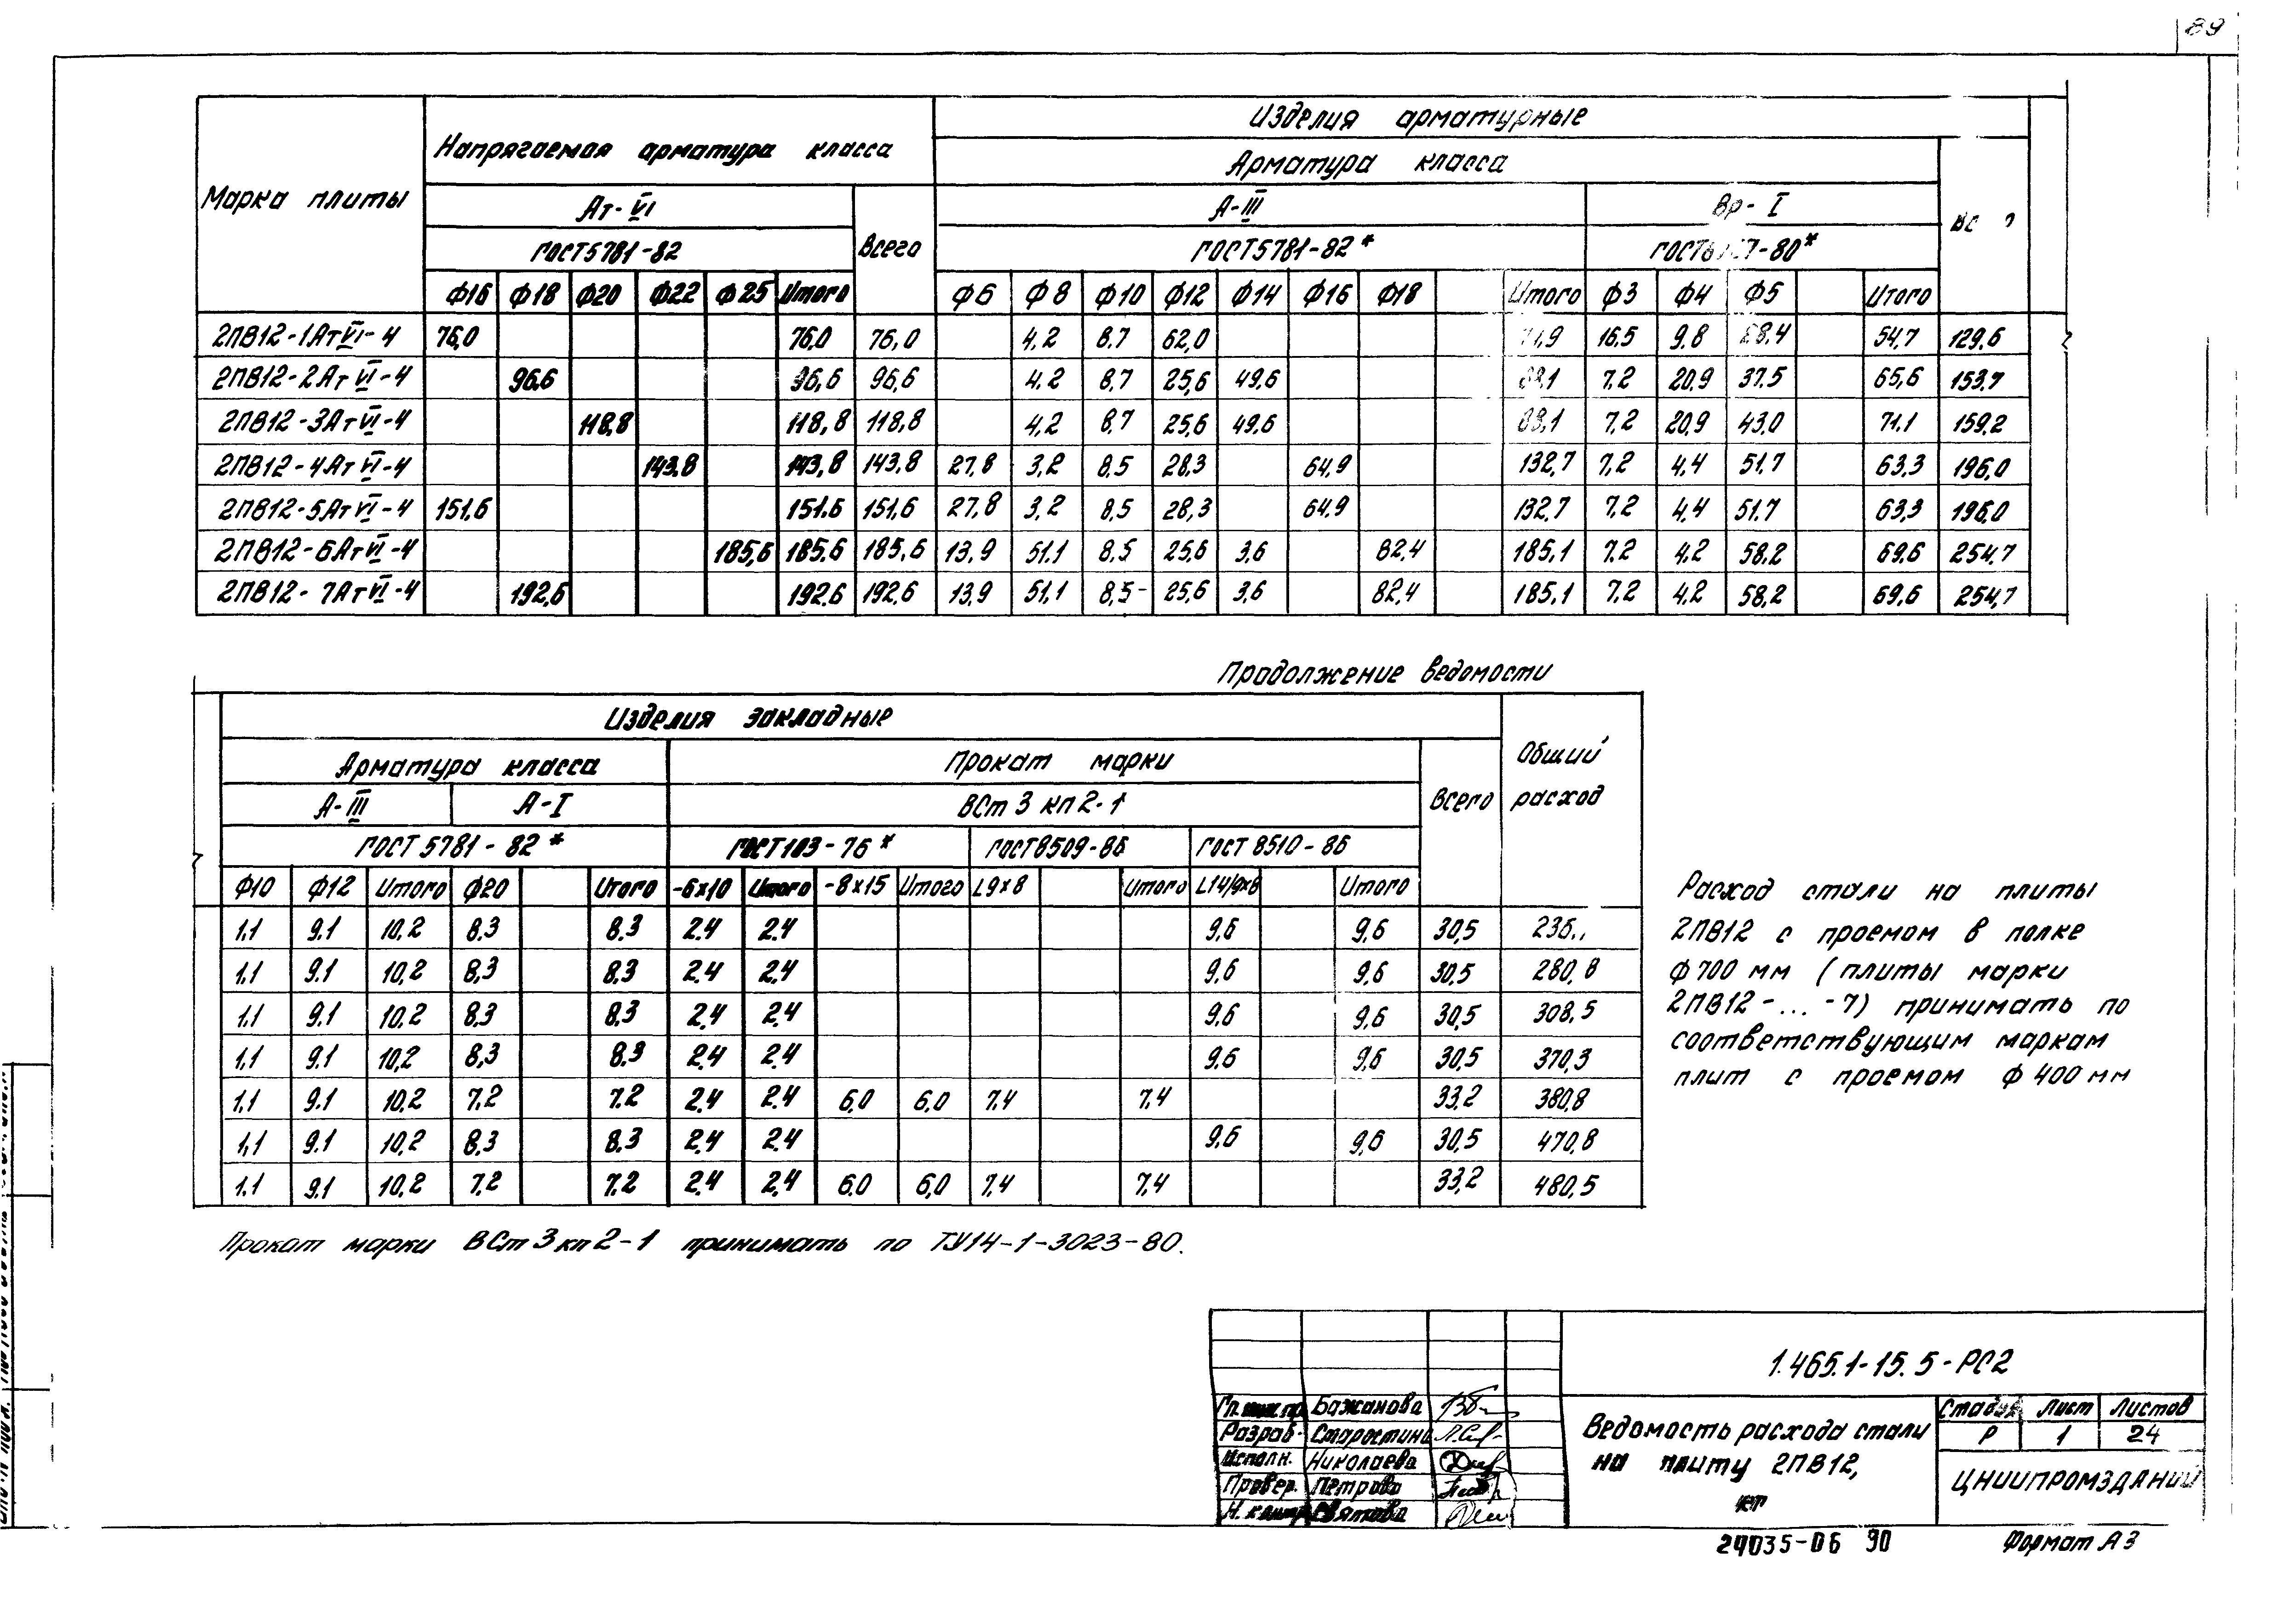 89
Изделия арматурные
Напрягаемая арматура класса
Арматура класса
Марка плиты
Ат-VI
А-III
Вр-I
ГОСТ 5781-82
Всего
ГОСТ 5781-82*
Ф16 Ф18 Ф20 Ф22 Ф25 Итого Ф6 Ф8 Ф10 Ф12 Ф14 Ф16 Ф18 Итого Ф3 Ф4 Ф5 Итого
2ПВ12-1АтVI-4 76,0 76,0 76,0 4,2 8.7 62,0 16,5 9.8 54,7 129,6
2ПВ12-2АтVI-4 96,6 96,6 96,6 4,2 8,7 25,6 49,6 7,2 20,9 37.5 65,6 153,7
2ПВ12-3АтVI-4 118,8 118,8 118,8 4,2 8,7 25,6 49,6 7,2 20,9 43,0 71,1 159,2
2ПВ12-4АтVI-4 143,8 143,8 143,8 27,8 3,2 8,5 28,3 64,9 132,7 7,2 4,4 51,7 63,3 196,0
2ПВ12-5АтVI-4 151,6 151,6 151,6 27,8 3,2 8,5 28,3 64,9 132,7 7,2 4,4 51,7 63,3 196,0
2ПВ12-6АтVI-4 185,6 185,6 185,6 13,9 51.1 8,5 25,6 3,6 82,4 185,1 7,2 4,2 58,2 69,6 254,7
2ПВ12-7АтVI-4 192,6 192,6 192,6 13,9 51,1 8,5- 25,6 3,6 82,4 185,1 7,2 4,2 58,2 69,6 254,7
Продолжение ведомости
Изделия закладные
Общий расход
Арматура класса Прокат марки
А-III А-I ВСт 3 кп 2-1 Всего
ГОСТ 5781-82* ГОСТ 103-76* ГОСТ 8509-86 ГОСТ 8510-86
Ф10 Ф12 Итого Ф20 Итого -6х10 Итого -8х15 Итого L9х8 Итого L14/9х8 Итого
1,1 9,1 10,2 8,3 8,3 2,4 2,4 9,6 9,6 30,5
1,1 9,1 10,2 8,3 8,3 2,4 2,4 9,6 9,6 30,5 280,8
1,1 9,1 10,2 8,3 8,3 2,4 2,4 9,6 9,6 30,5 308,5
1,1 9,1 10,2 8,3 8,3 2,4 2,4 9,6 9,6 30,5 370,3
1,1 9,1 10,2 7,2 7,2 2,4 2,4 6,0 6,0 7,4 7,4 33,2 380,8
1,1 9,1 10,2 8,3 8,3 2,4 2,4 9,6 9,6 30,5 470,8
1,1 9,1 10,2 7,2 7,2 2,4 2,4 6,0 6,0 7,4 7,4 33,2 480,5
Расход стали на плиты
2ПВ12 с проемом в полке
ф 700 мм (плиты марки
2ПВ12-...-7) принимать по
соответствующим маркам
плит с проемом ф 400 мм
Прокат марки ВСт 3 кп 2-1 принимать по ТУ14-1-3023-80.
1.465.1-15.5-РС2
Бажанова
Разраб. Старостина
Исполн. Николаева
Провер. Петрова
Н. контр. Святова
Ведомость расхода стали
на плиту 2ПВ12,
кг
Стадия Лист Листов
Р 1 24
ЦНИИПРОМЗДАНИЙ
24035-06 90
Формат А3